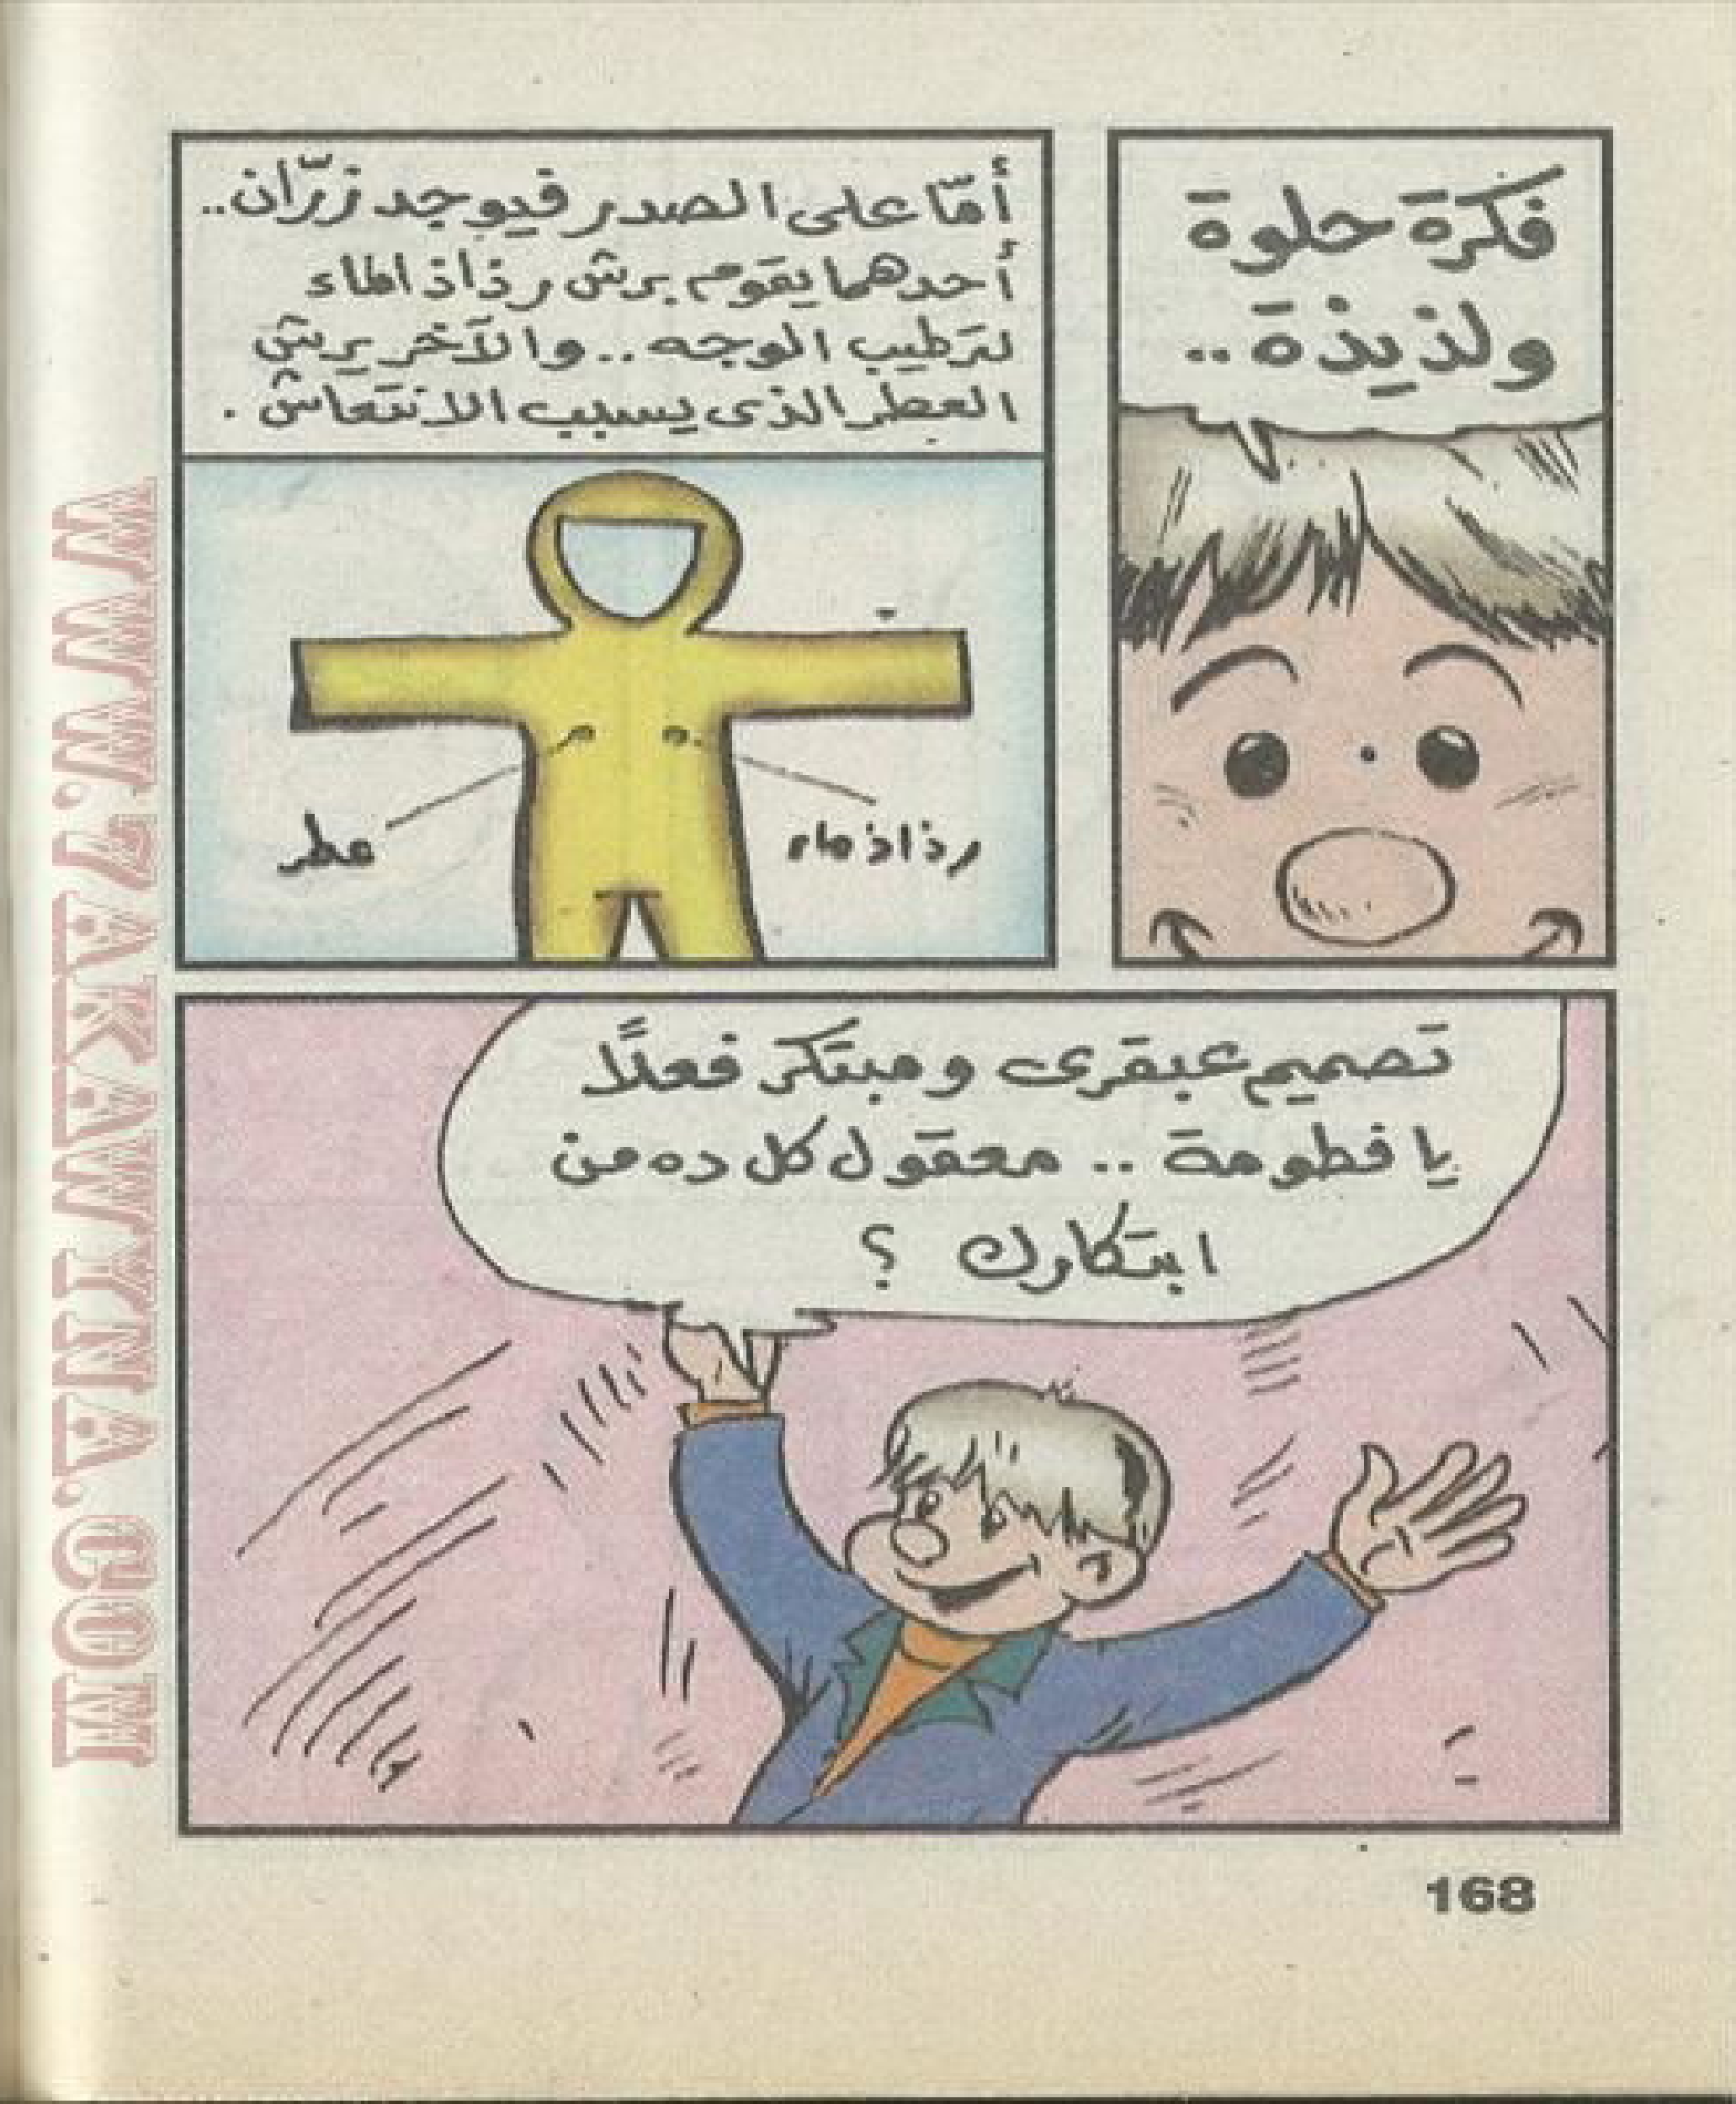 فكرة حلوة
ولذيذة..
أمّا على الصدر فيوجد زرّان..
أحدهما يقوم برش رذاذ الماء
لترطيب الوجه.. والآخر يرش
العطر الذى يسبب الانتعاش.
عطر
رذاذ ماء
تصميم عبقرى ومبتكر فعلًا
يا فطومة.. معقول كل ده من
ابتكارك ؟
168
WWW.7AKAWYNA.COM